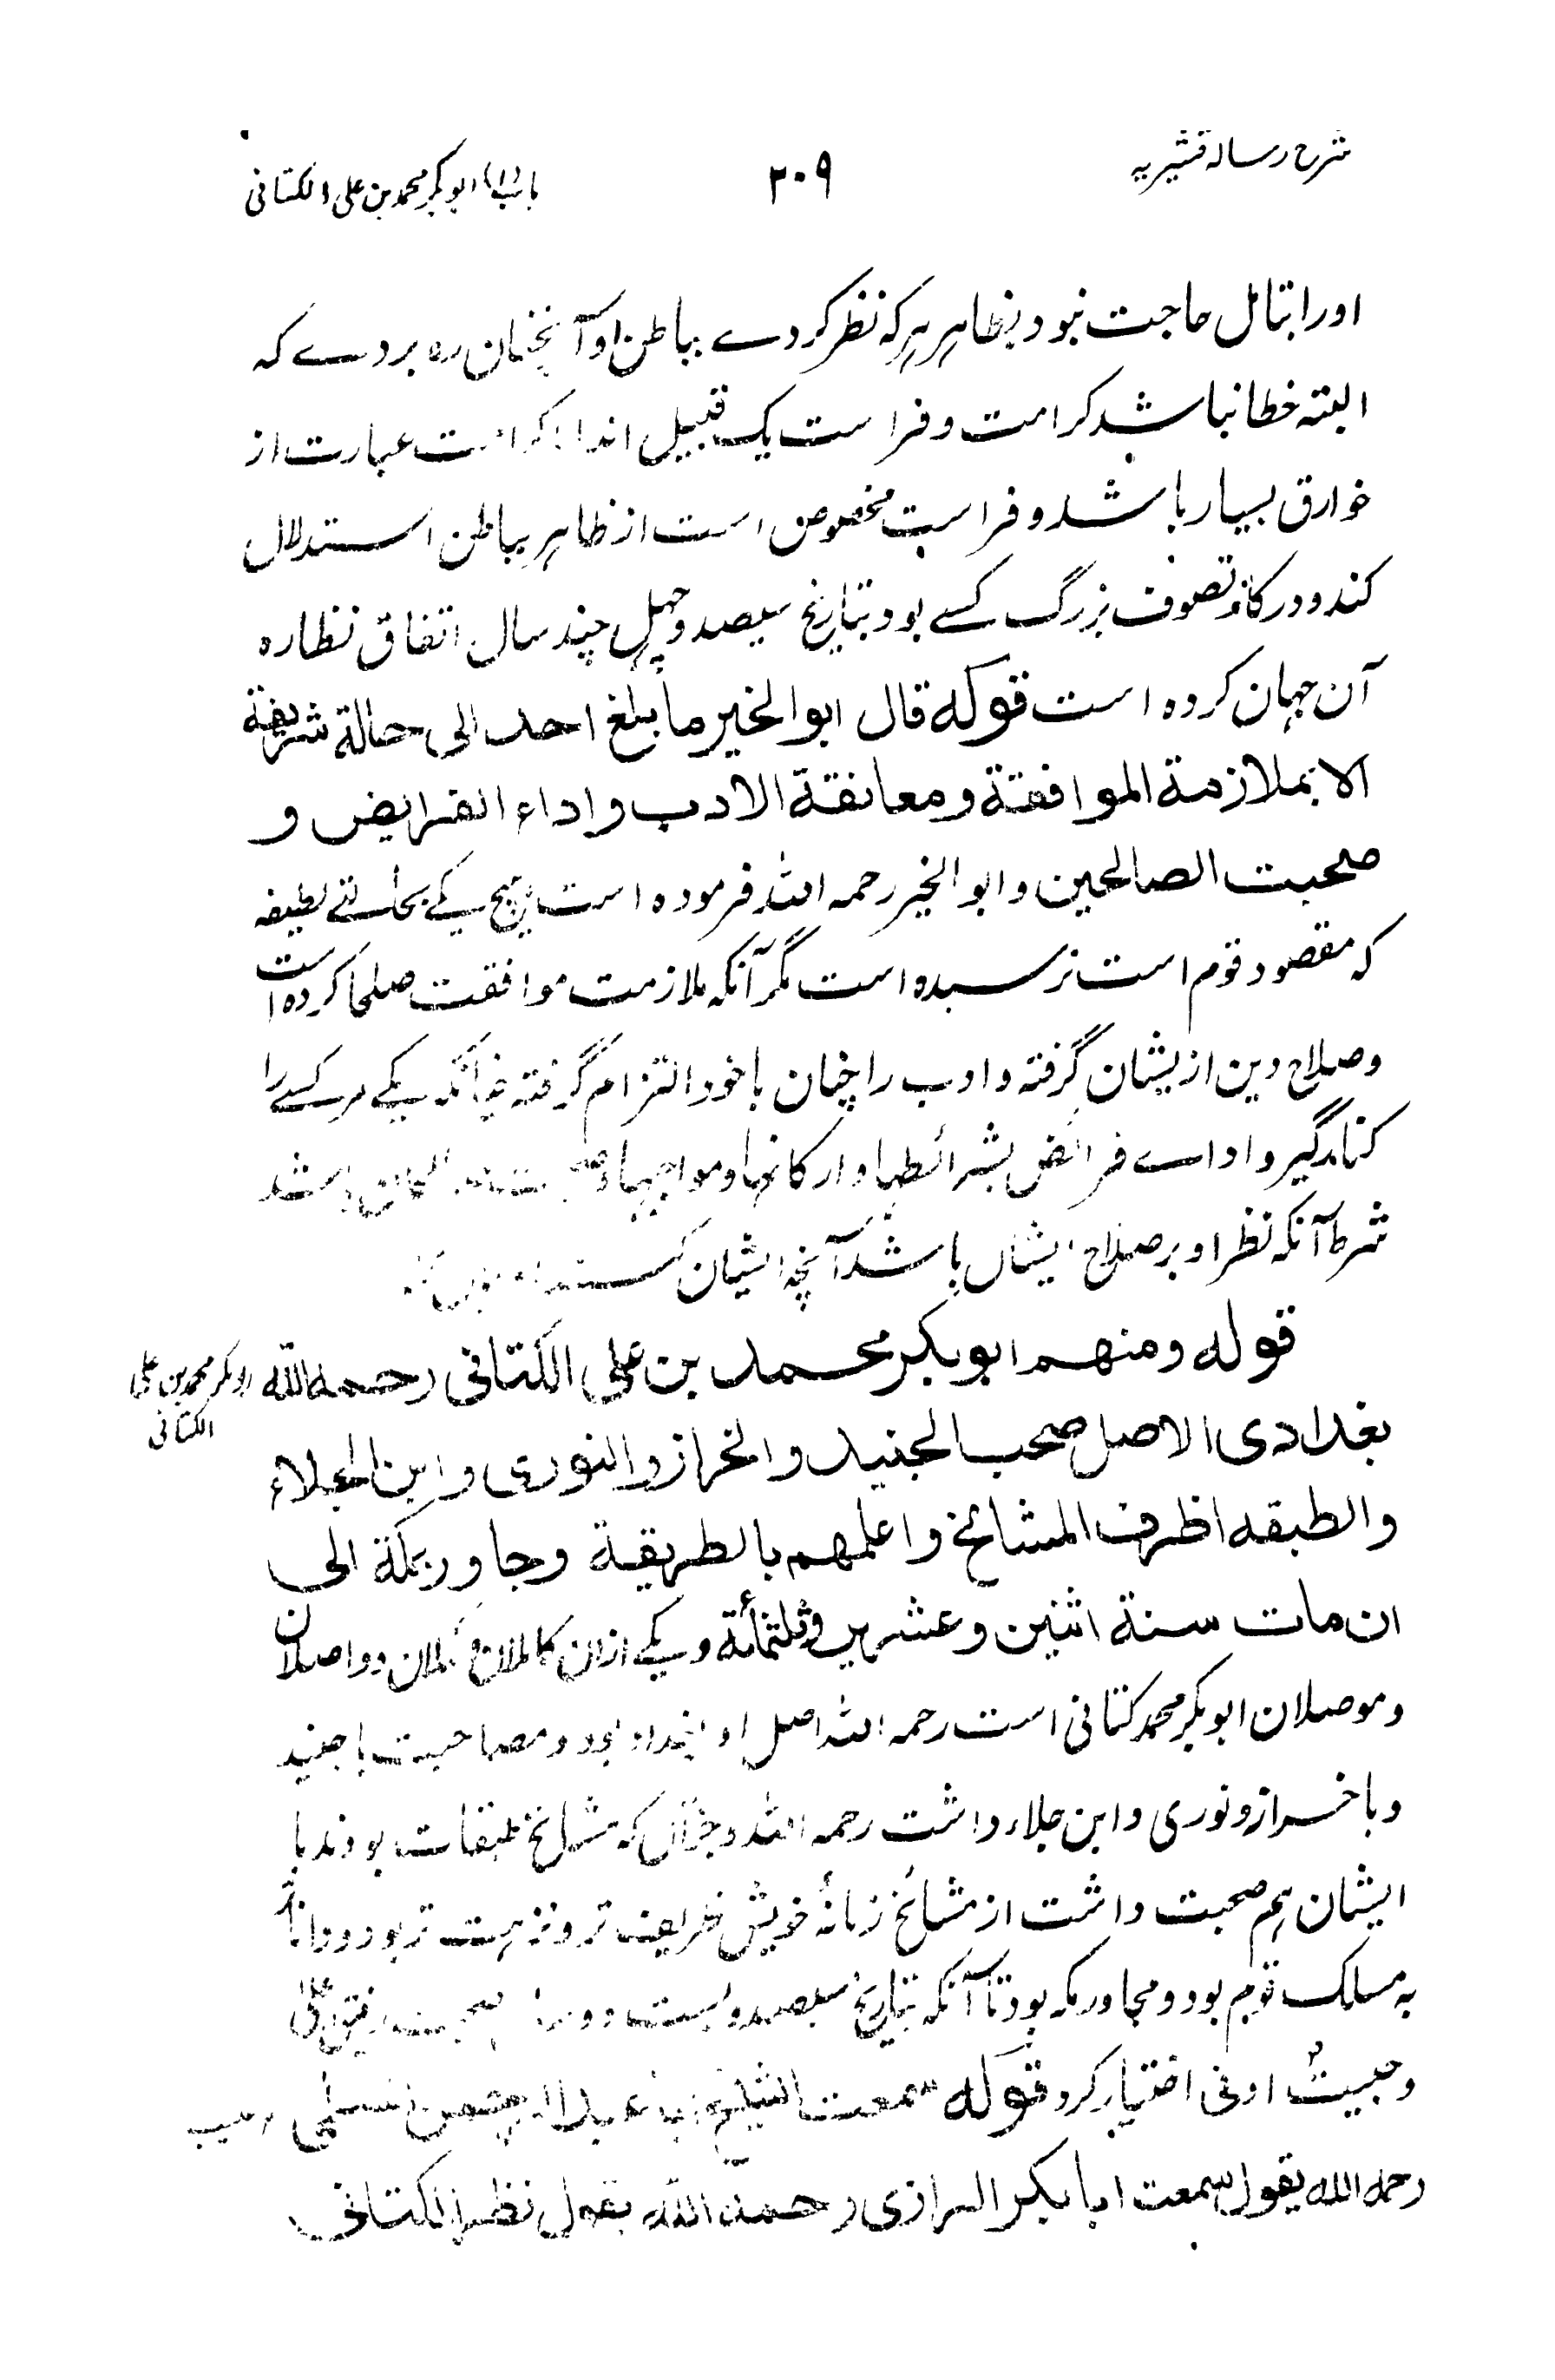 شرح رسالہ قشیریہ
۲۰۹
باب (۱) ابوبکر محمد بن علی الکتانی
اورا بتامل حاجت نبود بظاہر ہر کہ نظر کردے بباطن او آنچنان رہ بردے کہ
البتہ خطا نباشد کرامت و فراست یک قبیل اند اما کرامت عبارت از
خوارق بسیار باشد و فراست مخصوص است از ظاہر بباطن استدلال
کند و در کار تصوف بزرگ کسے بود بتاریخ سیصد و چہل چند سال اتفاق نظارہ
آن جہان کردہ است قوله قال ابو الخیر ما بلغ احد الی حالة شریفة
الا بملازمة الموافقة ومعانقة الادب واداء الفرایض و
صحبت الصالحین و ابو الخیر رحمہ اللہ فرمودہ است ہیچ یکے بحالتے لطیفہ
کہ مقصود قوم است نرسیدہ است مگر آنکہ ملازمت موافقت صلحا کردہ است
و صلاح دین ازیشان گرفتہ و ادب را چنان با خود التزام گرفتہ چنانکہ یکے مر کسے را
کنار گیر و اداے فرائض بشرائطہا و ارکانہا و مواجبہا باشد
شرط آنکہ نظر او بر صلاح ایشاں باشد آنچہ ایشان کنند
قوله ومنهم ابو بکر محمد بن علی الکتانی رحمه الله
ابوبکر محمد بن علی
الکتانی
بغدادی الاصل صحب الجنید والخراز والنوری وابن الجلاء
والطبقه اظرف المشائخ واعلمهم بالطریقة وجاور بمکة الی
ان مات سنة اثنین وعشرین وثلثمائة و یکے ازان کاملان و مکملان و واصلان
و موصلان ابوبکر محمد کتانی است رحمہ اللہ اصل او بغداد بود و مصاحبت با جنید
و با خراز و نوری و ابن جلاء داشت رحمہ اللہ و جزآں کہ مشائخ طبقات بودند با
ایشان ہم صحبت داشت از مشائخ زمانۂ خویش ظریف تر و نزہت تر بود و داناتر
بہ مسلک قوم بود و مجاور مکہ بود تا آنکہ بتاریخ سیصد و بست و دو صحبت رفیق اعلیٰ
و حبیب اونی اختیار کرد قوله سمعت الشیخ ابا عبد الرحمن السلمی
رحمه الله یقول سمعت ابا بکر الرازی رحمه الله یقول نظر الکتانی